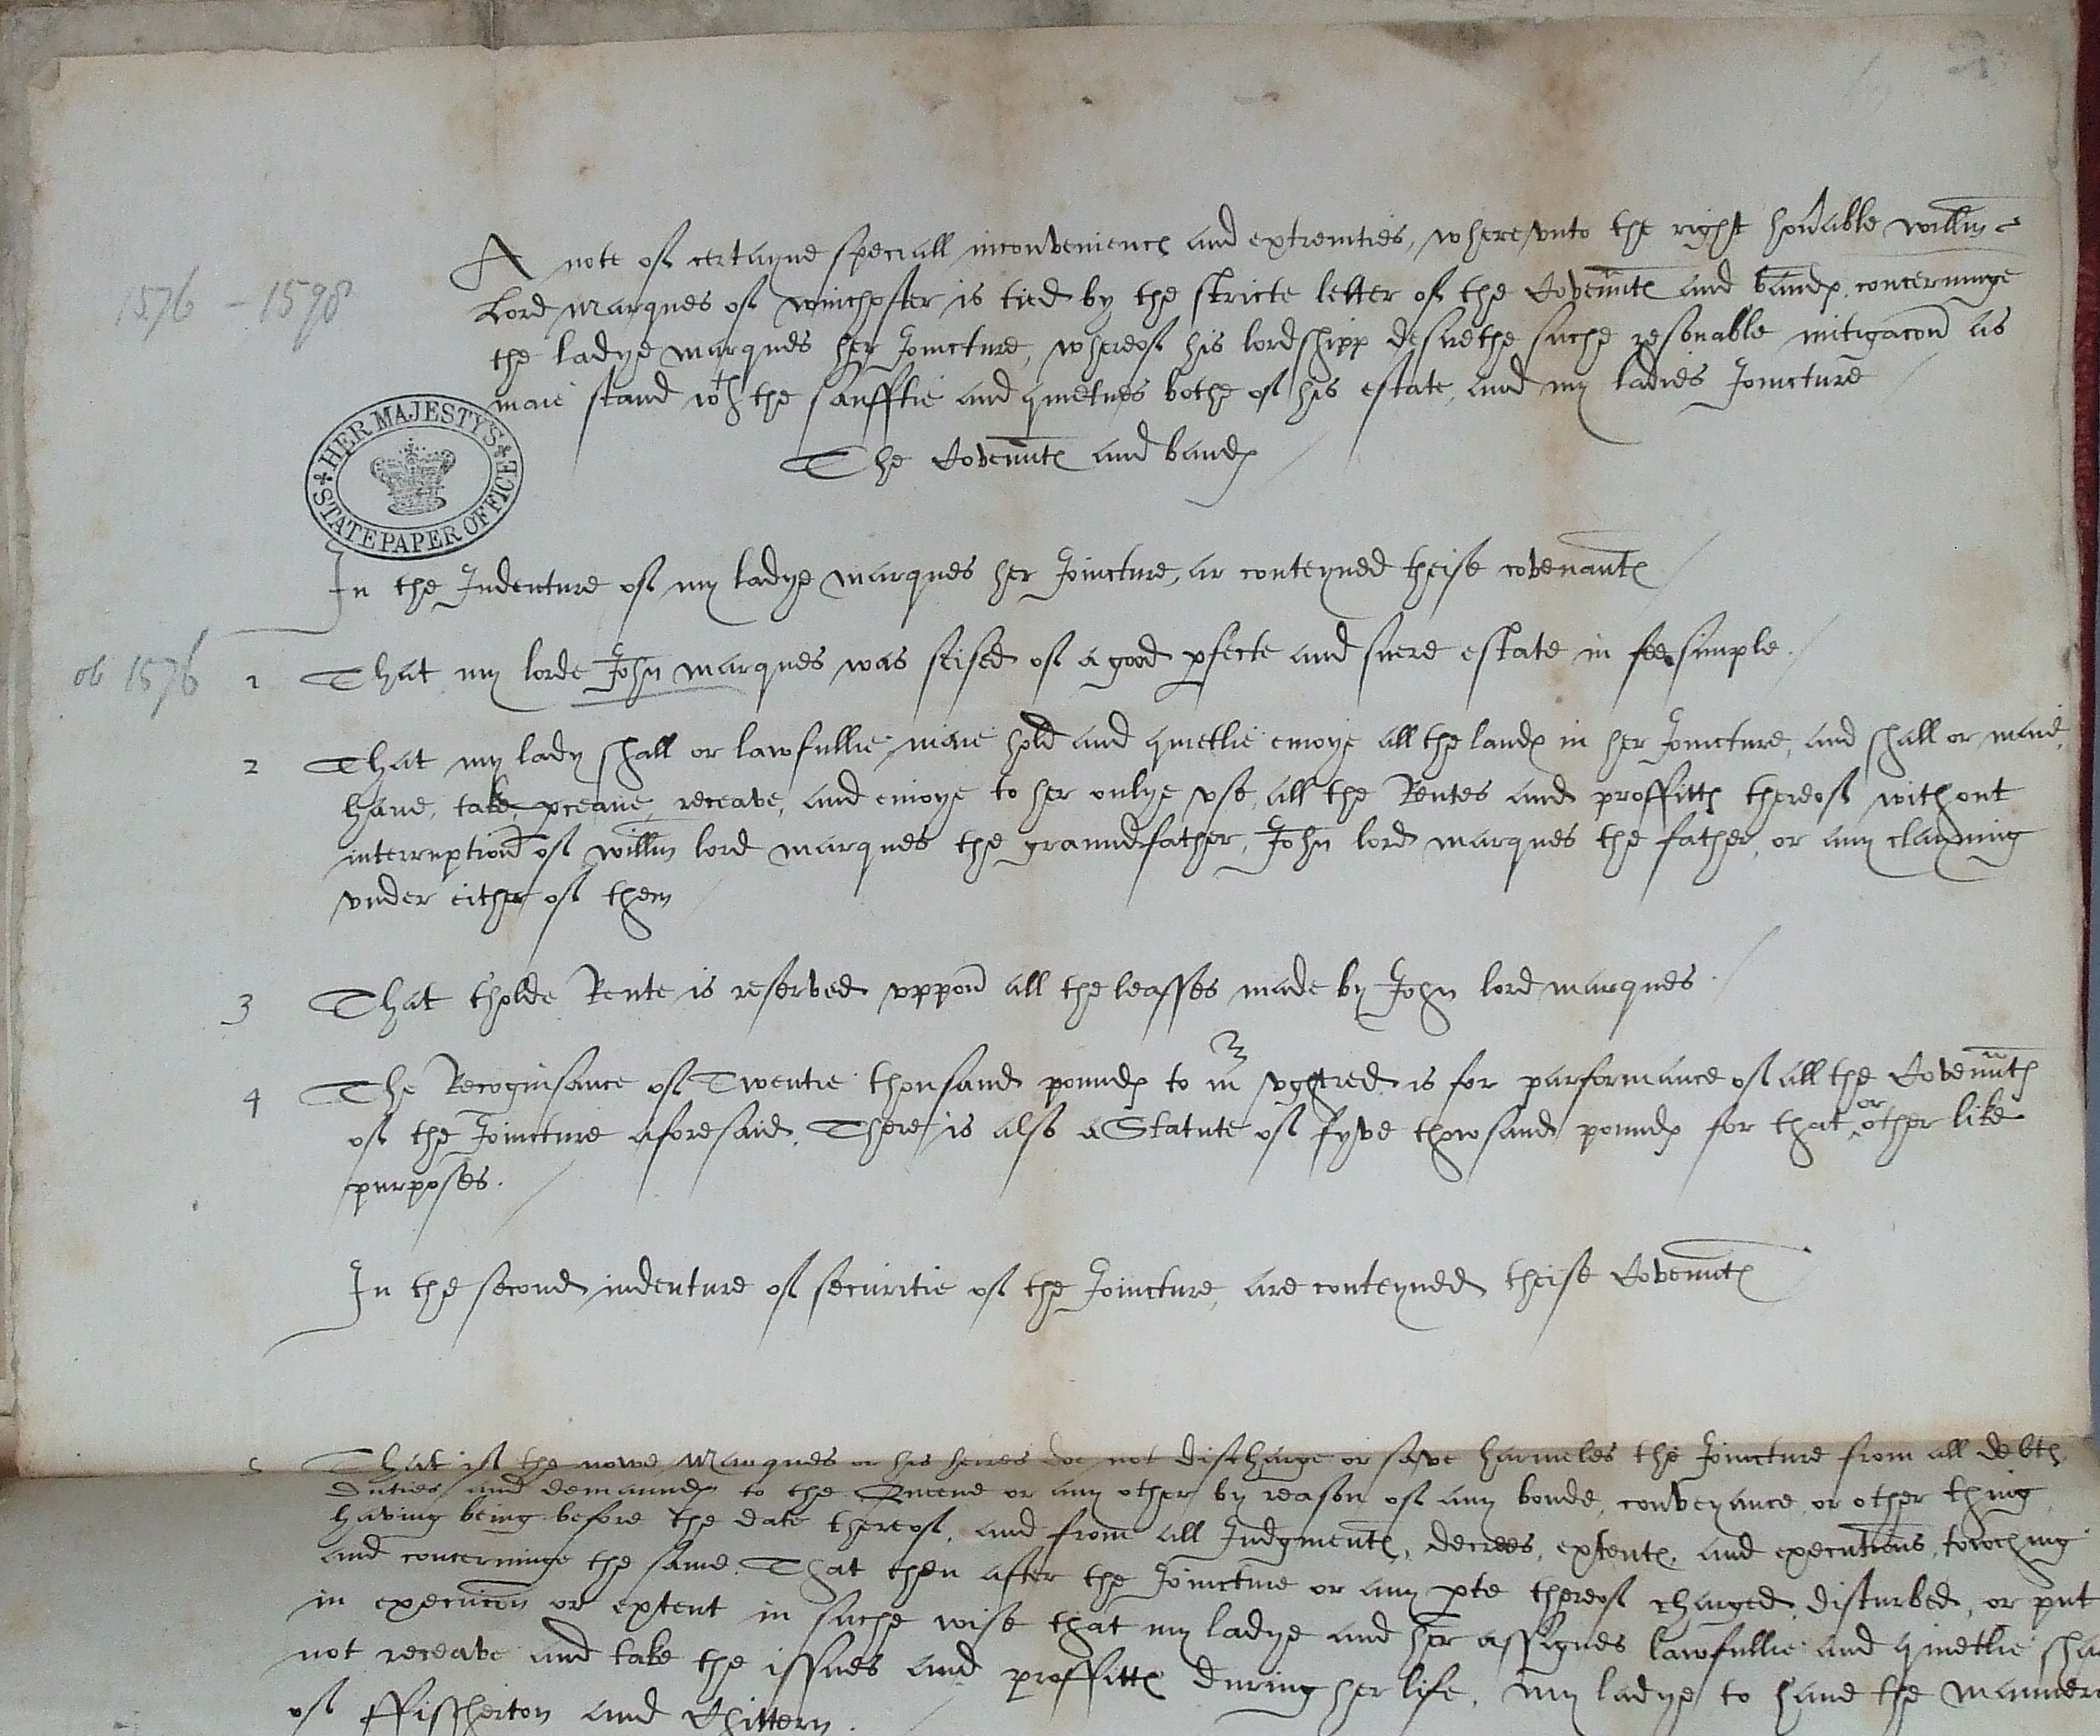 A note of certayne speciall inconveniencs and extremities, wherevnto the right honable willm
1576 - 1598
Lord Marques of winchester is tied by the stricte letter of the Covennts and bands concerninge
the ladye marques her Joincture, whereof his lordshipp desirethe suche resonable mitigacon as
maie stand wth the saufftie and quietnes bothe of his estate, and my ladies Joincture
The Covennts and bands
HER MAJESTY'S STATE PAPER OFFICE
In the Indenture of my ladye marques her Joincture, ar conteyned theise covenants
ob 1576
1 That my lorde John marques was seised of a good pfecte and suere estate in fee simple.
2 That my lady shall or lawfullie maie hold and quietlie enioye all the lands in her Joincture, and shall or maie,
haue, take, pceaue, receave, and enioye to her onlye vse, all the Rentes and proffitts thereof without
interruption of willm lord marques the graundfather, John lord marques the father, or any clayming
vnder either of them
3 That tholde Rente is reserved vppon all the leasses made by John lord marques.
4 The Recognisance of Twentie thousand pounds to mr vghtred is for parformance of all the Covennts
of the Joincture aforesaid. There is also a Statute of fyve thowsand pounds for that or other like
purposes.
In the second indenture of securitie of the Joincture, are conteyned theise Covennts
5 That if the nowe Marques or his heires doe not discharge or save harmeles the Joincture from all debts,
duties and demaunds to the Queene or any other by reason of any bonde, conveyance or other thing
having being before the date thereof, and from all Judgments, decrees, extents, and executions, towching
and concerninge the same. That then after the Joincture or any pte thereof charged, disturbed, or put
in execucon or extent in suche wise that my ladye and her assignes lawfullie and quietlie
not receave and take the issues and proffitts during her life, my ladye to haue the
of ffissherton and Chittern.